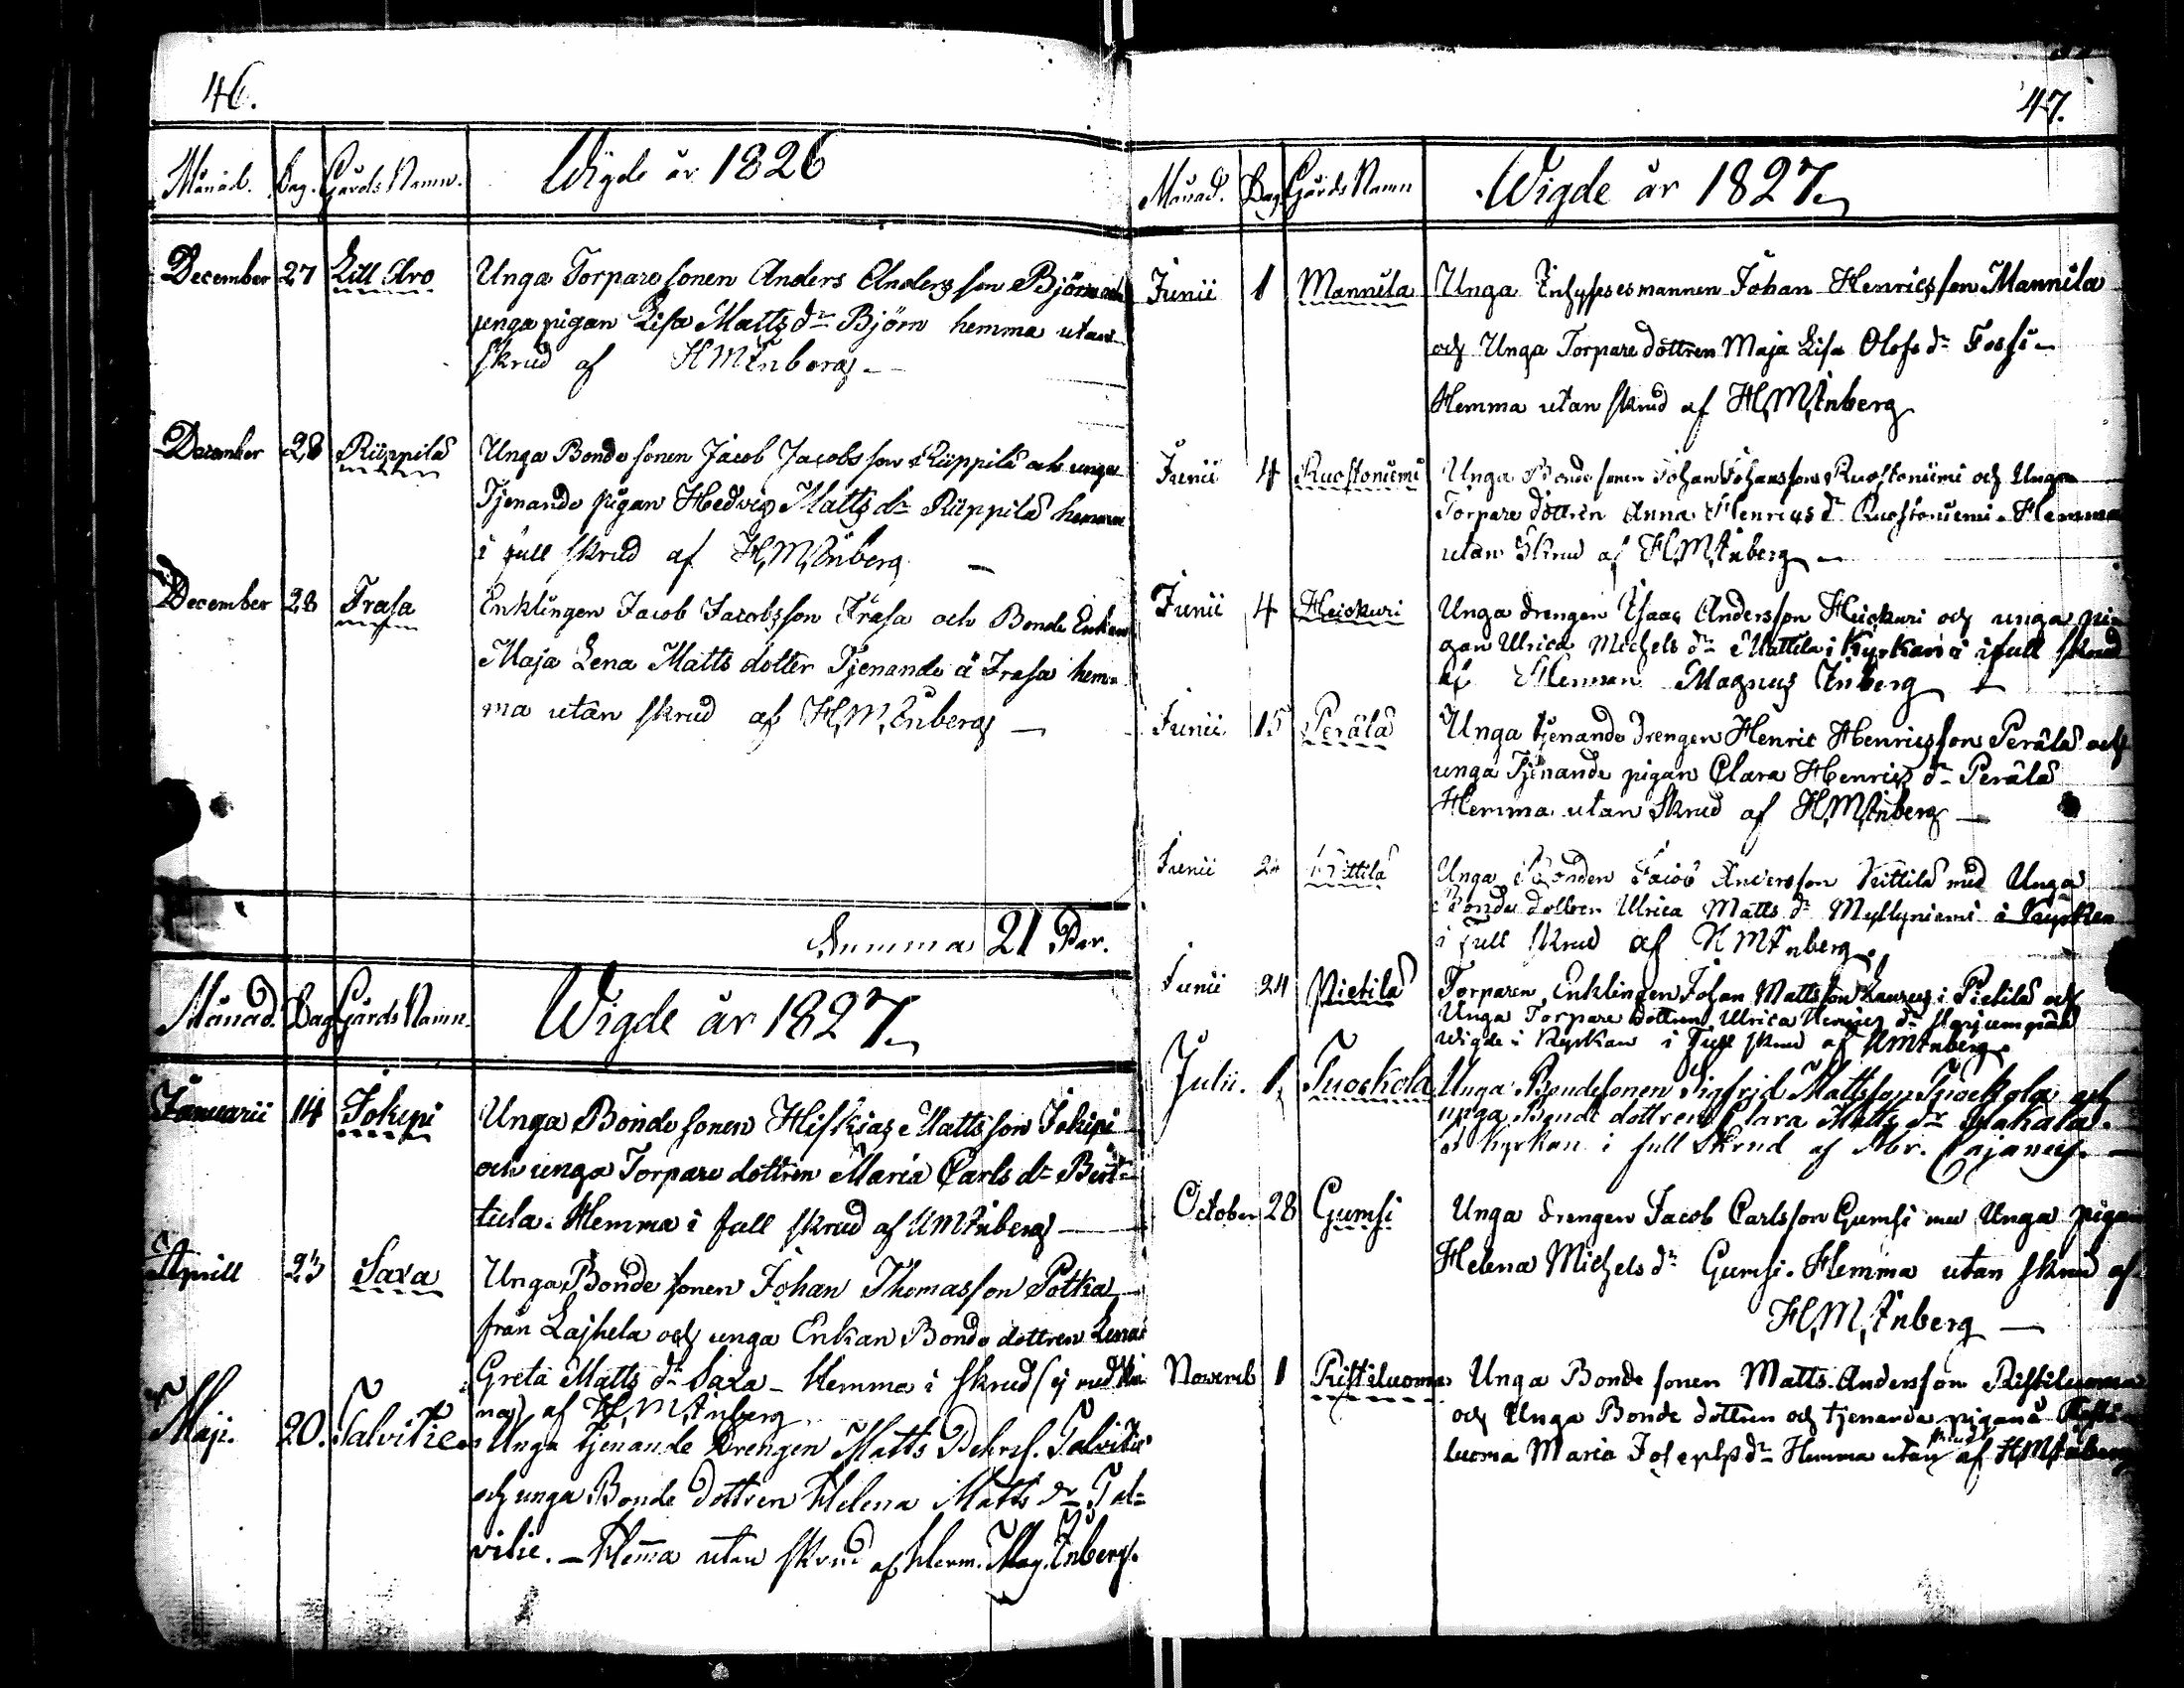 46.
Månad. Dag. Gårds Namn. Wigde år 1826
December 27 Lill Aro Unga Torpare sonen Anders Andersson Björn och
unga pigan Lisa Matts dr Björn hemma utan
skrud af HMInberg
December 28 Riippilä Unga Bonde sonen Jacob Jacobsson Riippilä och unga
Tjenande pigan Hedvig Matts dr Riippilä hemma
i full skrud af H,M,Inberg
December 28 Frasa Enklingen Jacob Jacobsson Frasa och Bonde Enkan
Maja Lena Matts dotter Tjenande å Frasa hem-
ma utan skrud af H,M,Inberg
Summa 21 Par.
Månad. Dag Gårds Namn. Wigde år 1827.
Januarii 14 Jokipi Unga Bonde sonen Hiskias Mattsson Jokipi
och unga Torpare dottren Maria Carls dr Bert-
tula. Hemma i full skrud af HMInberg
Aprill 23 Saxa Unga Bonde sonen Johan Thomasson Potka
från Lajhela och unga Enkan Bonde dottren Lena
Greta Matts dr Saxa - Hemma i skrud (ej med
af H,M,Inberg
Maji. 20. Talvitie Unga tjenande Drengen Matts Talvitie
och unga Bonde dottren Helena Matts dr Tal=
vitie. - Hemma utan skrud af Herm. Mag. Inberg.
47.
Månad. Dag Gårds Namn Wigde år 1827.
Junii 1 Mannila Unga Inhysesmannen Johan Henricsson Mannila
och Unga Torpare dottren Maja Lisa Olofs dr Fossi-
Hemma utan skrud af H,M,Inberg
Junii 4 Ruostoniemi Unga Bonde sonen Johan Johansson Ruostoniemi och Unga
Torpare dottren Anna Henrics dr Ruostoniemi. Hemma
utan Skrud af H,M,Inberg
Junii 4 Heickuri Unga drengen Isaac Andersson Heickuri och unga pi-
gan Ulrica Michels dr Mattila i Kyrkan i full skrud
af Herman Magnus Inberg
Junii 15 Perälä Unga tjenande drengen Henric Henricsson Perälä och
unga Tjenande pigan Clara Henrics dr Perälä
Hemma utan Skrud af H,M,Inberg
Junii 24 Kittilä Unga Bonden Jacob Andersson Kittilä med Unga
Bonde dottren Ulrica Matts dr Myllyniemi i Kyrkan
i full skrud af HMInberg.
Junii 24 Pietilä Torparen, Enklingen Johan Mattsson i Pietilä och
Unga Torpare dottren Ulrica Henrics dr
Wigde i Kyrkan i full skrud af HMInberg.
Julii. 1. Tuockola Unga Bondesonen Sigfrid Mattsson Tuockola och
unga Bonde dottren Clara Matts dr
i Kyrkan i full Skrud af Abr. Cajanus.
October 28 Gumsi Unga drengen Jacob Carlsson Gumsi med Unga pigan
Helena Michels dr Gumsi. Hemma utan skrud af
H,M,Inberg
Novemb 1 Ristiluoma Unga Bonde sonen Matts Andersson Ristiluoma
och Unga Bonde dottren och tjenande pigan å Risti
luoma Maria Josephs dr Hemma utan skrud af H,M,Inberg